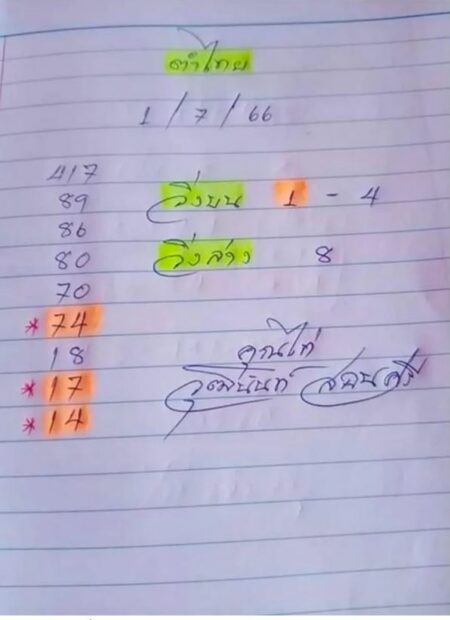 ตำไทย
1 / 7 / 66
417
89
86
80
70
* 74
18
* 17
* 14
วิ่งบน 1 - 4
วิ่งล่าง 8
คุณไก่
วุฒินันท์ สอนศรี